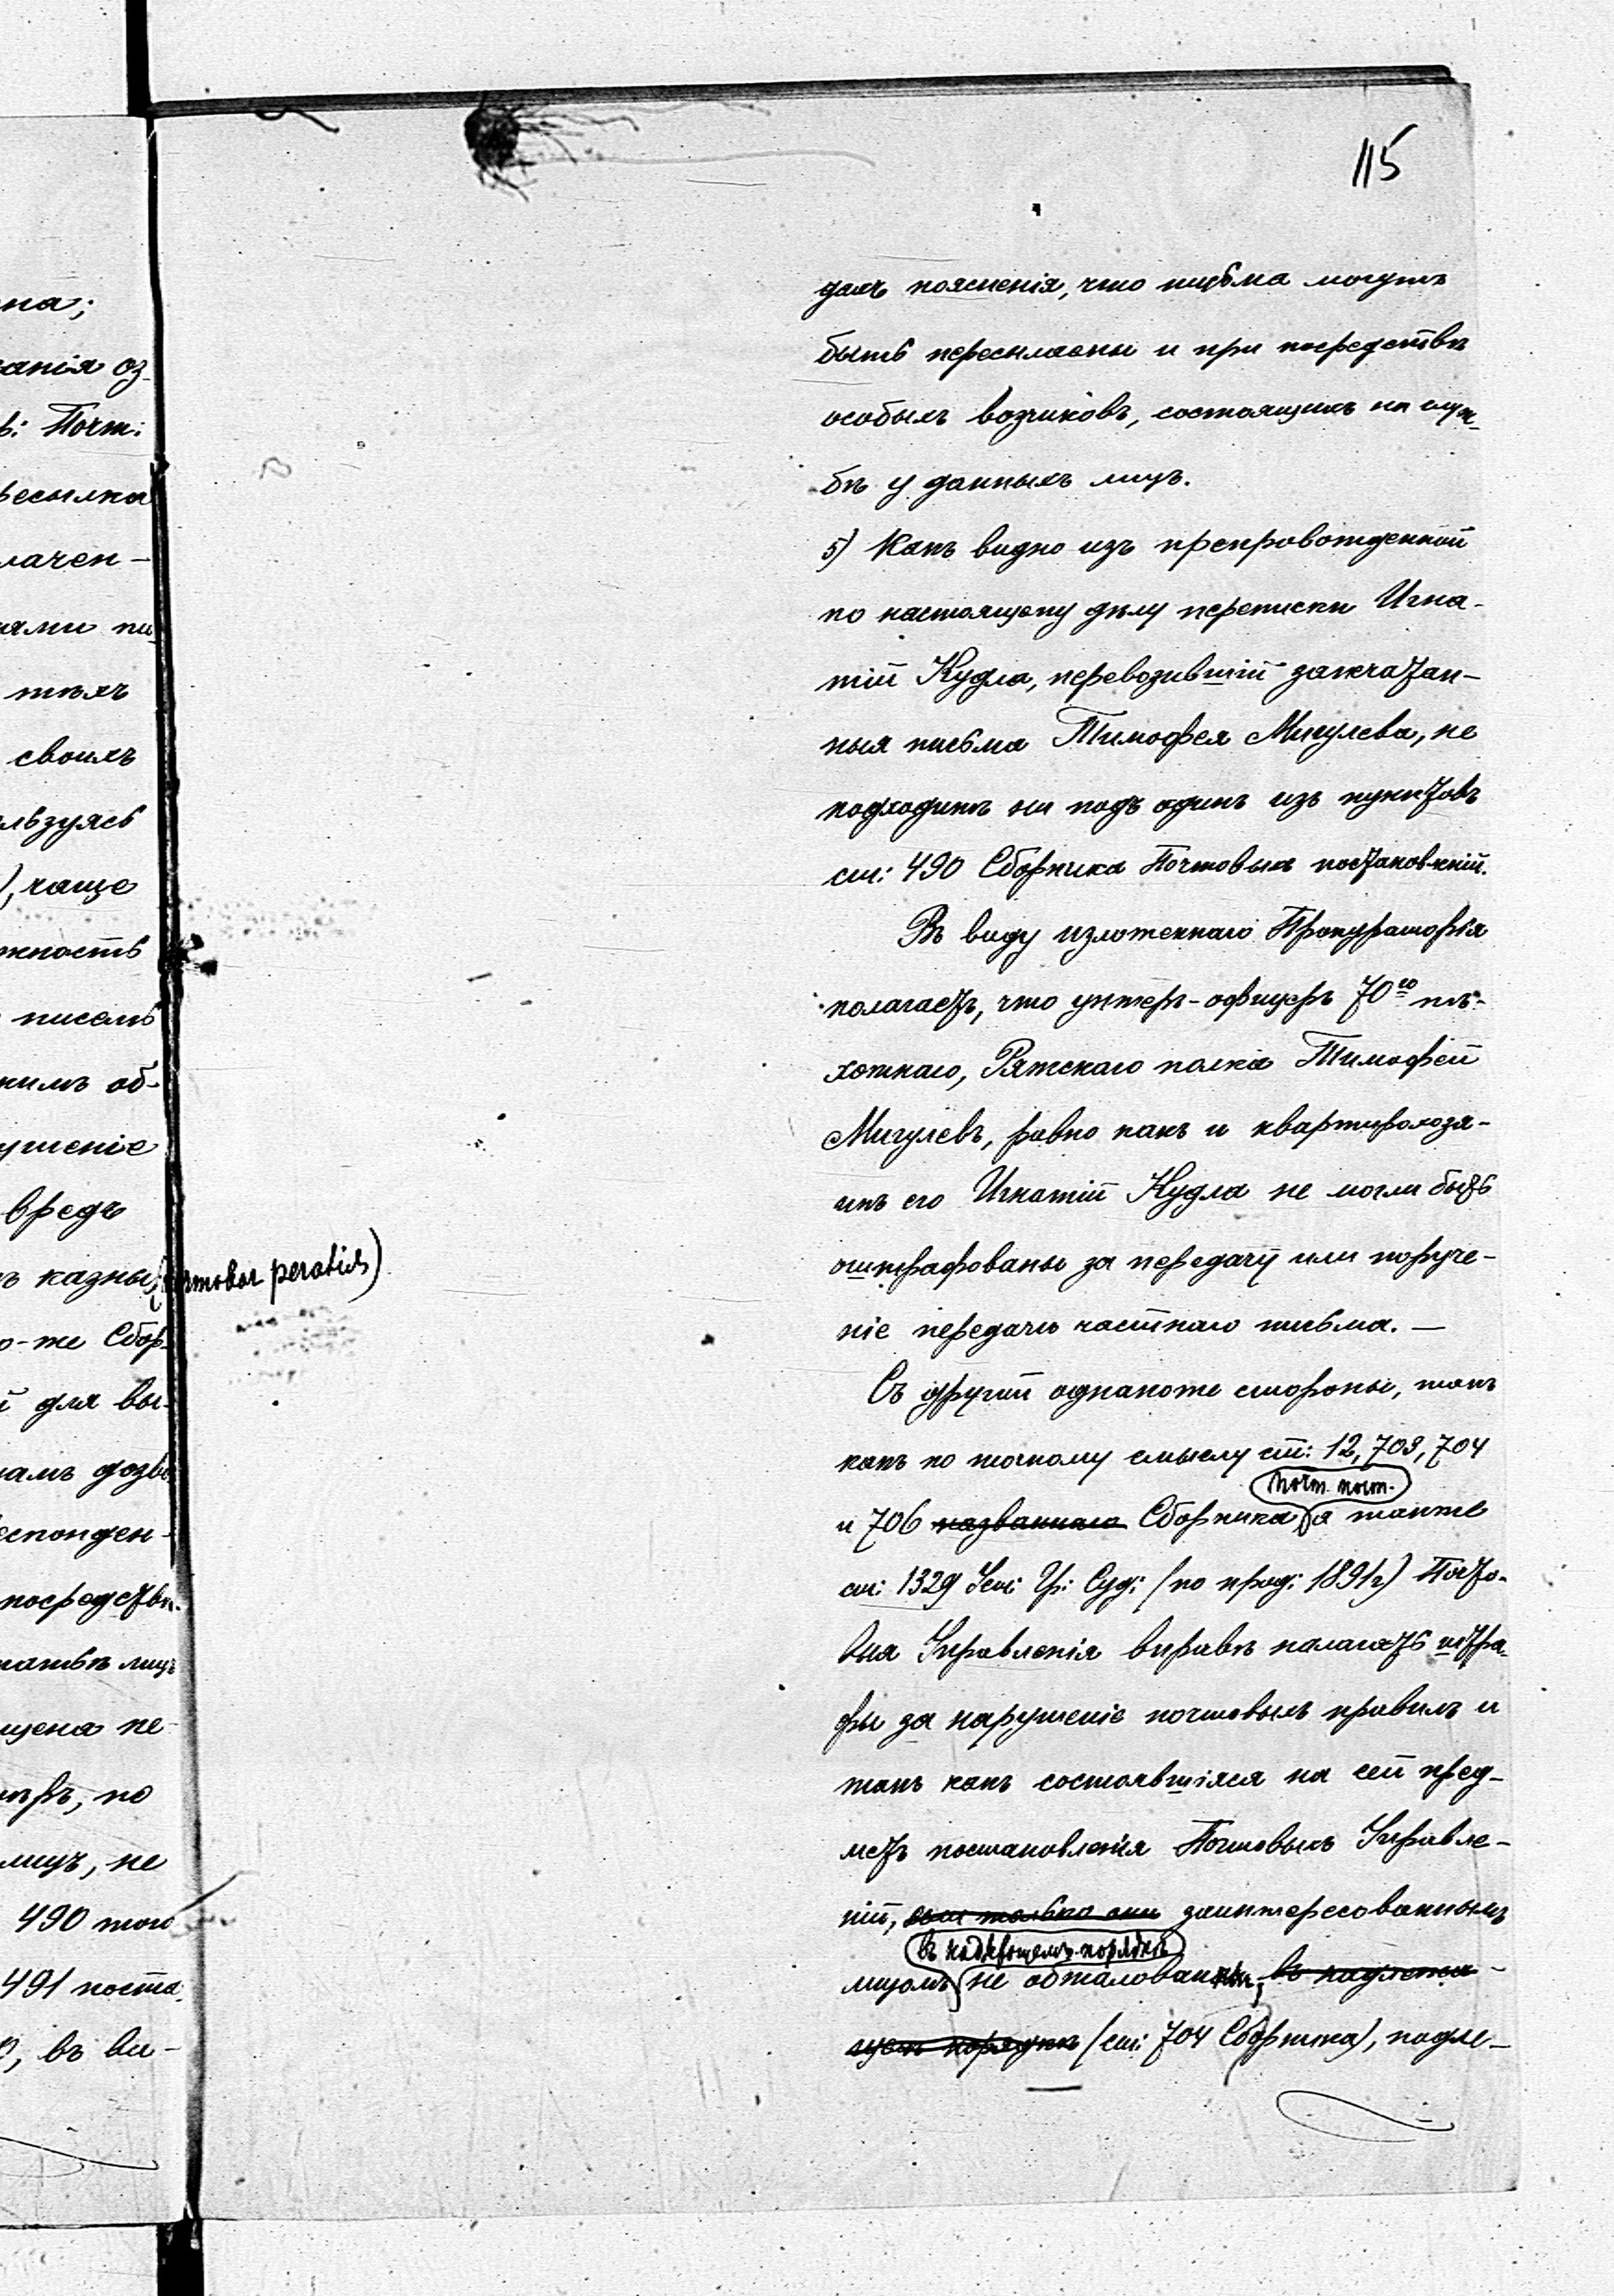 115
дахъ поясненія, что письма могутъ
быть пересылаемы и при посредствѣ
особыхъ возчиковъ, состоящихъ на служ-
бѣ у данныхъ лицъ.
5) Какъ видно изъ препровожденной
по настоящему дѣлу переписки Игна-
тій Кудла, перевозившій запечатан-
ныя письма Тимофея Мигулева, не
подходитъ ни подъ одинъ изъ пунктовъ
ст: 490 Сборника Почтовыхъ постановленій.
Въ виду изложеннаго Прокураторія
полагаетъ, что унтеръ-офицеръ 70го пѣ-
хотнаго, Ряжскаго полка Тимофей
Мигулевъ, равно какъ и квартирохозя-
инъ его Игнатій Кудла не могли быть
оштрафованы за передачу или поруче-
ніе передачи частнаго письма. —
Съ другой однакоже стороны, такъ
какъ по точному смыслу ст: 12, 703, 704
почт. пост.
и 706 названнаго Сборника, а также
ст: 1329 Уст: Гр: Суд: (по прод: 1891г) Почто-
выя Управленія вправѣ налагать штра-
фы за нарушеніе почтовыхъ правилъ и
такъ какъ состоявшіяся на сей пред-
метъ постановленія Почтовыхъ Управле-
ній, если только они заинтересованнымъ
въ надлежащемъ порядкѣ
лицомъ не обжалованы, въ надлежа-
щемъ порядкѣ (ст: 704 Сборника), подле-
на;
санія оз-
Почт:
ресылка
лачен-
тѣхъ
своихъ
льзуясь
), чаще
жность
писемъ
кимъ об-
ушеніе
вредъ
казны
о-же Сбор-
й для вы-
намъ дозво
еспонден-
посредства
щена пе-
по
лицъ, не
490 того
491 поста-
въ ви-